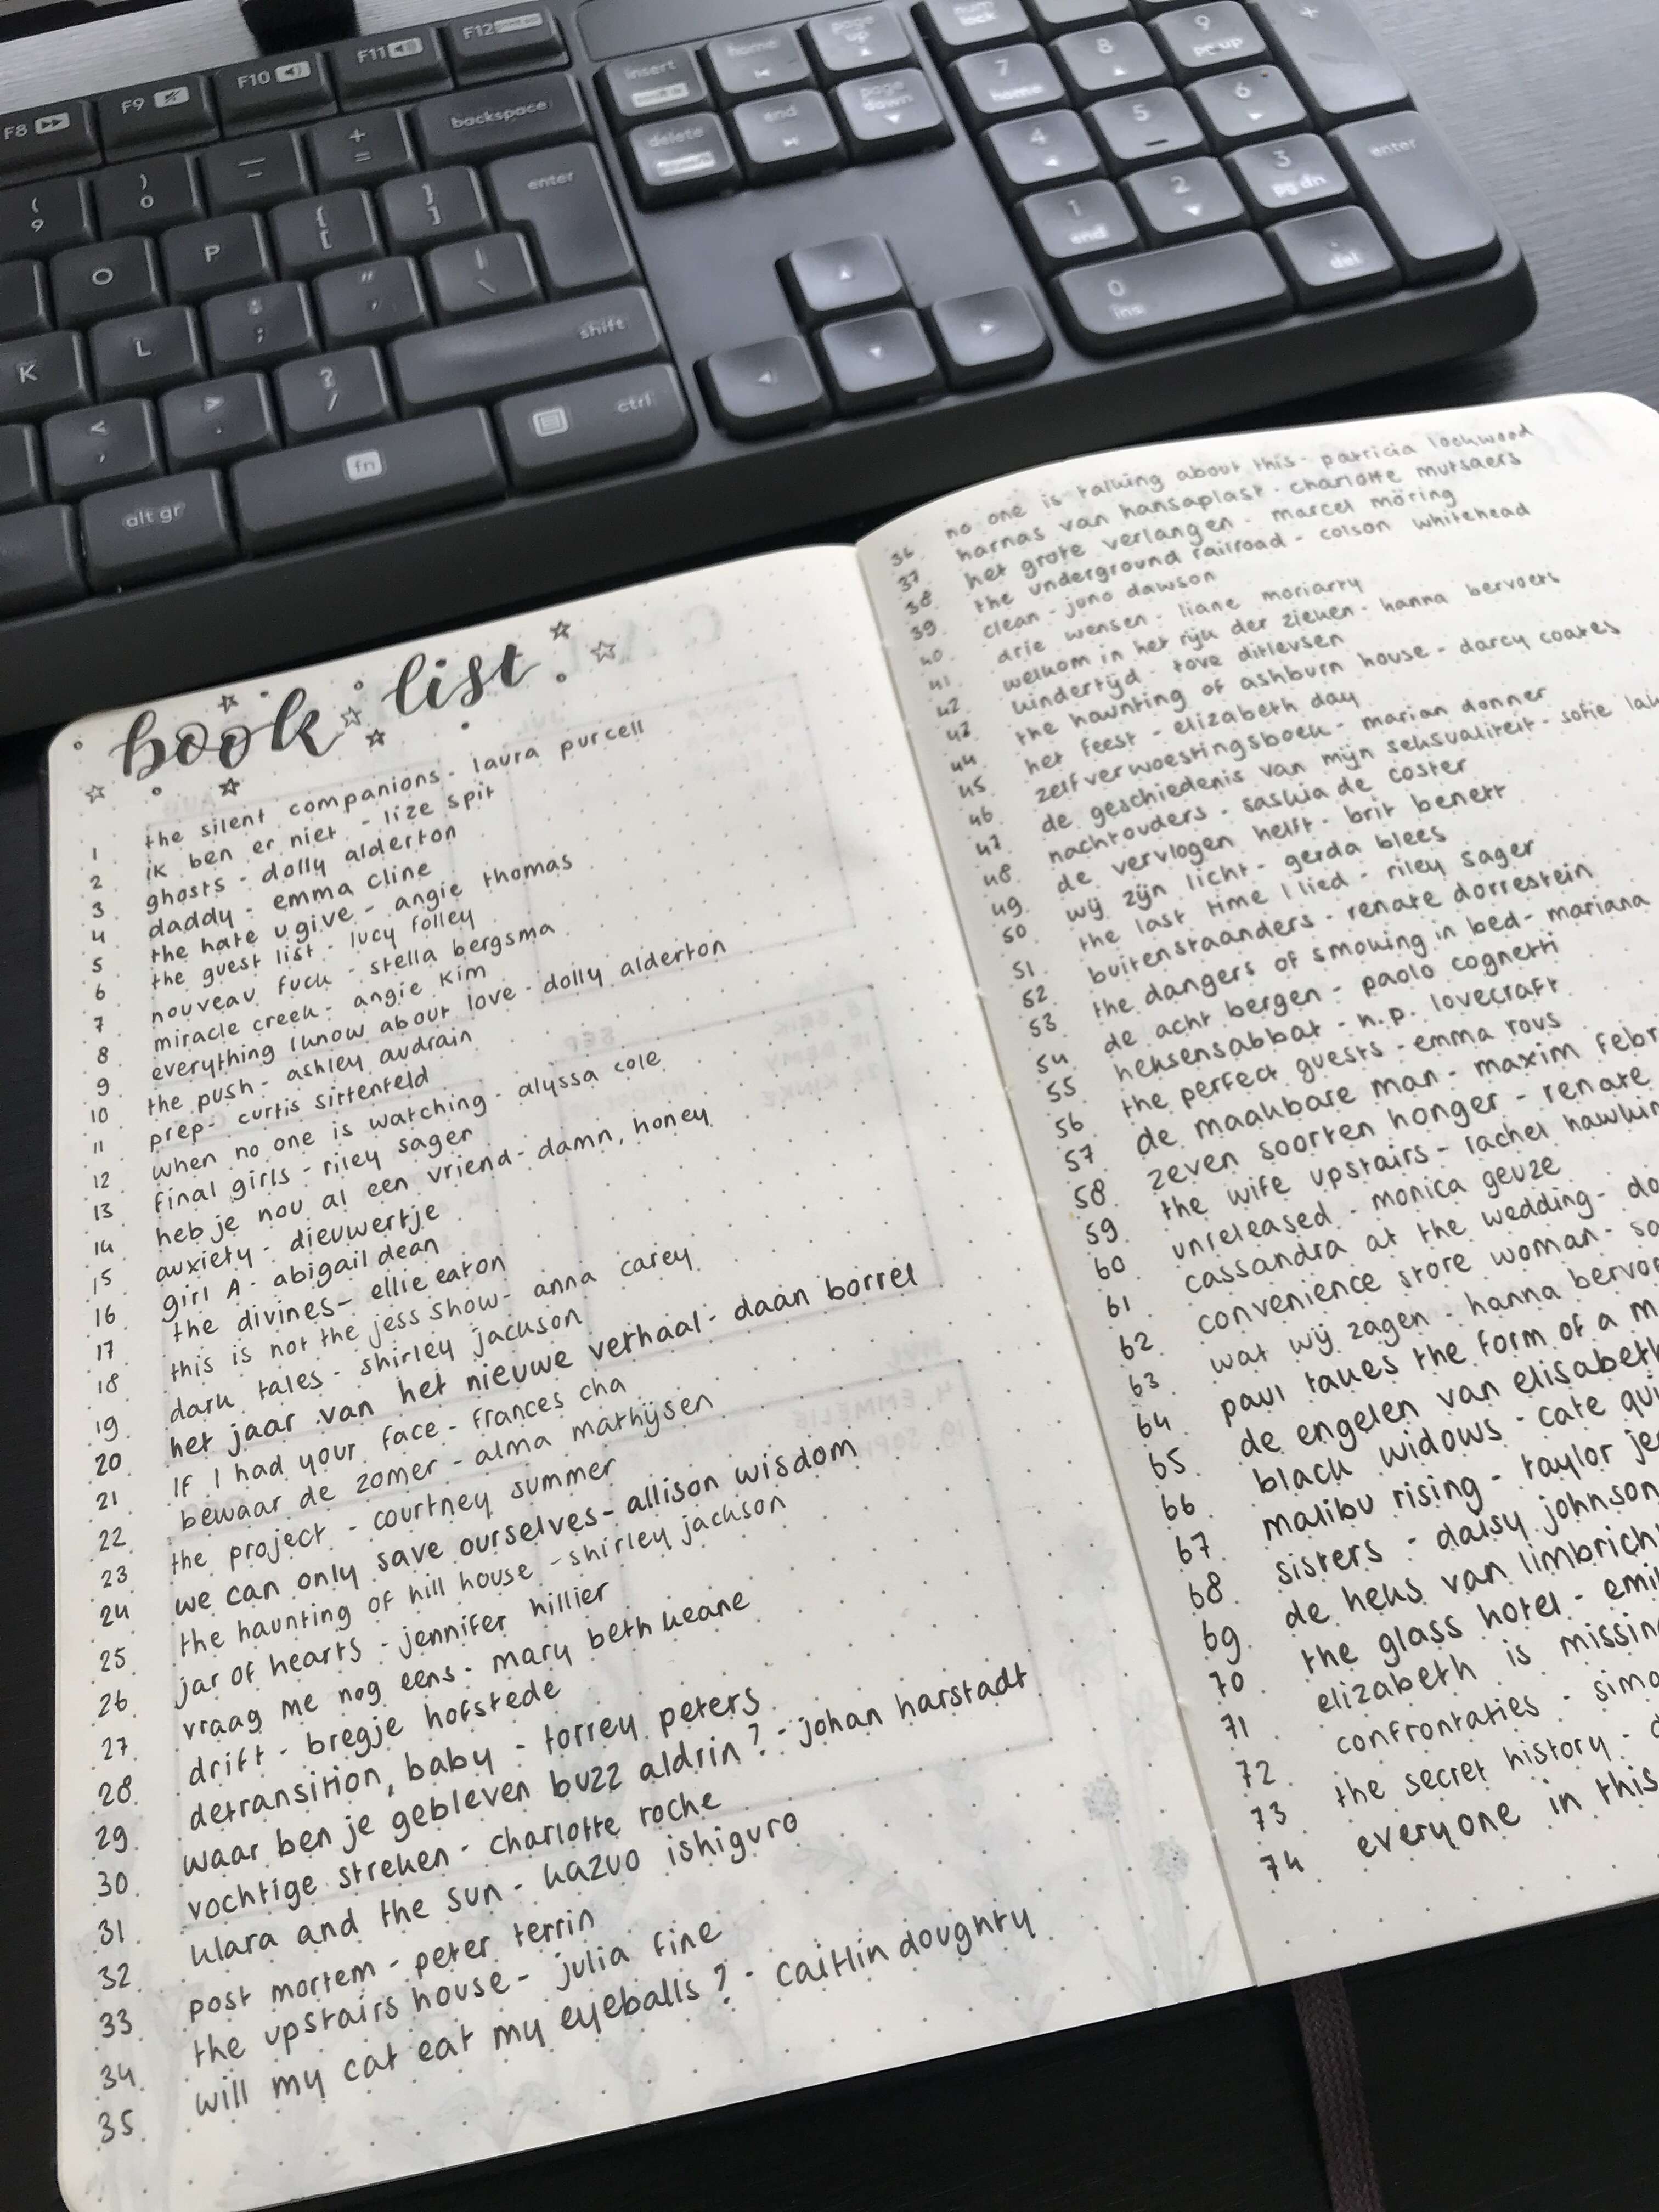 F8 F9 F10 F11 F12
( 9 ) 0 — + = backspace
insert home page up
delete end page down
num lock
7 home 8 9 pg up +
4 5 6
1 end 2 3 pg dn enter
0 ins . del
O P { [ } ] enter
K L : ; " ' | \
< , > . ? / shift
alt gr fn ctrl
book list
1 the silent companions - laura purcell
2 ik ben er niet - lize spit
3 ghosts - dolly alderton
4 daddy - emma cline
5 the hate u give - angie thomas
6 the guest list - lucy folley
7 nouveau fuck - stella bergsma
8 miracle creek - angie kim
9 everything I know about love - dolly alderton
10 the push - ashley audrain
11 prep - curtis sittenfeld
12 when no one is watching - alyssa cole
13 final girls - riley sager
14 heb je nou al een vriend - damn, honey
15 auxiety - dieuwertje
16 girl A - abigail dean
17 the divines - ellie eaton
18 this is not the jess show - anna carey
19 dark tales - shirley jackson
20 het jaar van het nieuwe verhaal - daan borrel
21 If I had your face - frances cha
22 bewaar de zomer - alma mathijsen
23 the project - courtney summer
24 we can only save ourselves - allison wisdom
25 the haunting of hill house - shirley jackson
26 jar of hearts - jennifer hillier
27 vraag me nog eens - mary beth keane
28 drift - bregje hofstede
29 detransition, baby - torrey peters
30 waar ben je gebleven buzz aldrin? - johan harstadt
31 vochtige streken - charlotte roche
32 klara and the sun - kazuo ishiguro
33 post mortem - peter terrin
34 the upstairs house - julia fine
35 will my cat eat my eyeballs? - caitlin doughty
36 no one is talking about this - patricia lockwood
37 harnas van hansaplast - charlotte mutsaers
38 het grote verlangen - marcel möring
39 the underground railroad - colson whitehead
40 clean - juno dawson
41 drie wensen - liane moriarty
42 welkom in het rijk der zieken - hanna bervoets
43 kindertijd - tove ditlevsen
44 the haunting of ashburn house - darcy coates
45 het feest - elizabeth day
46 zelfverwoestingsboek - marian donner
47 de geschiedenis van mijn seksualiteit - sofie lak
48 nachtouders - saskia de coster
49 de vervlogen helft - brit benett
50 wij zijn licht - gerda blees
51 the last time I lied - riley sager
52 buitenstaanders - renate dorrestein
53 the dangers of smoking in bed - mariana
54 de acht bergen - paolo cognetti
55 heksensabbat - h.p. lovecraft
56 the perfect guests - emma rous
57 de maakbare man - maxim febr
58 zeven soorten honger - renate
59 the wife upstairs - rachel hawkin
60 unreleased - monica geuze
61 cassandra at the wedding - do
62 convenience store woman - sa
63 wat wij zagen - hanna bervo
64 paul takes the form of a m
65 de engelen van elisabeth
66 black widows - cate qui
67 malibu rising - taylor je
68 sisters - daisy johnson
69 de heks van limbrich
70 the glass hotel - emi
71 elizabeth is missin
72 confrontaties - simo
73 the secret history - d
74 everyone in this